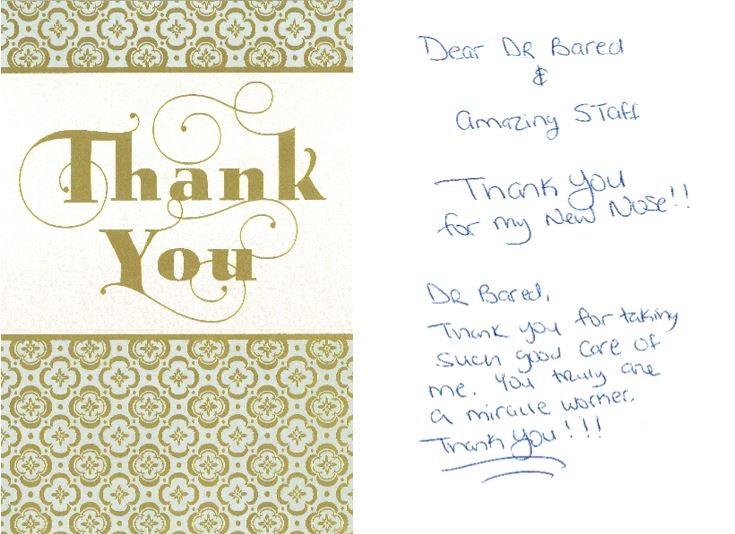 Thank
You
Dear DR Bared
&
amazing Staff
Thank you
for my New Nose!!
DR Bared,
Thank you for taking
such good care of
me. You truly are
a miracle worker.
Thank you!!!